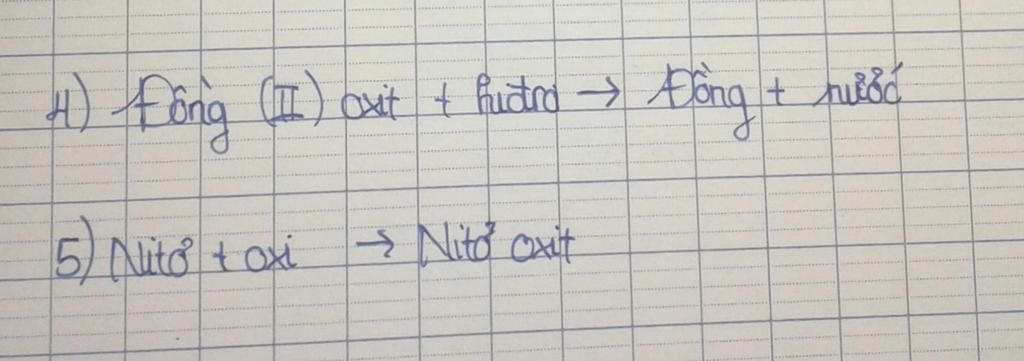 4) Đồng (II) oxit + hiđro → Đồng + nước
5) Nitơ + oxi → Nitơ oxit